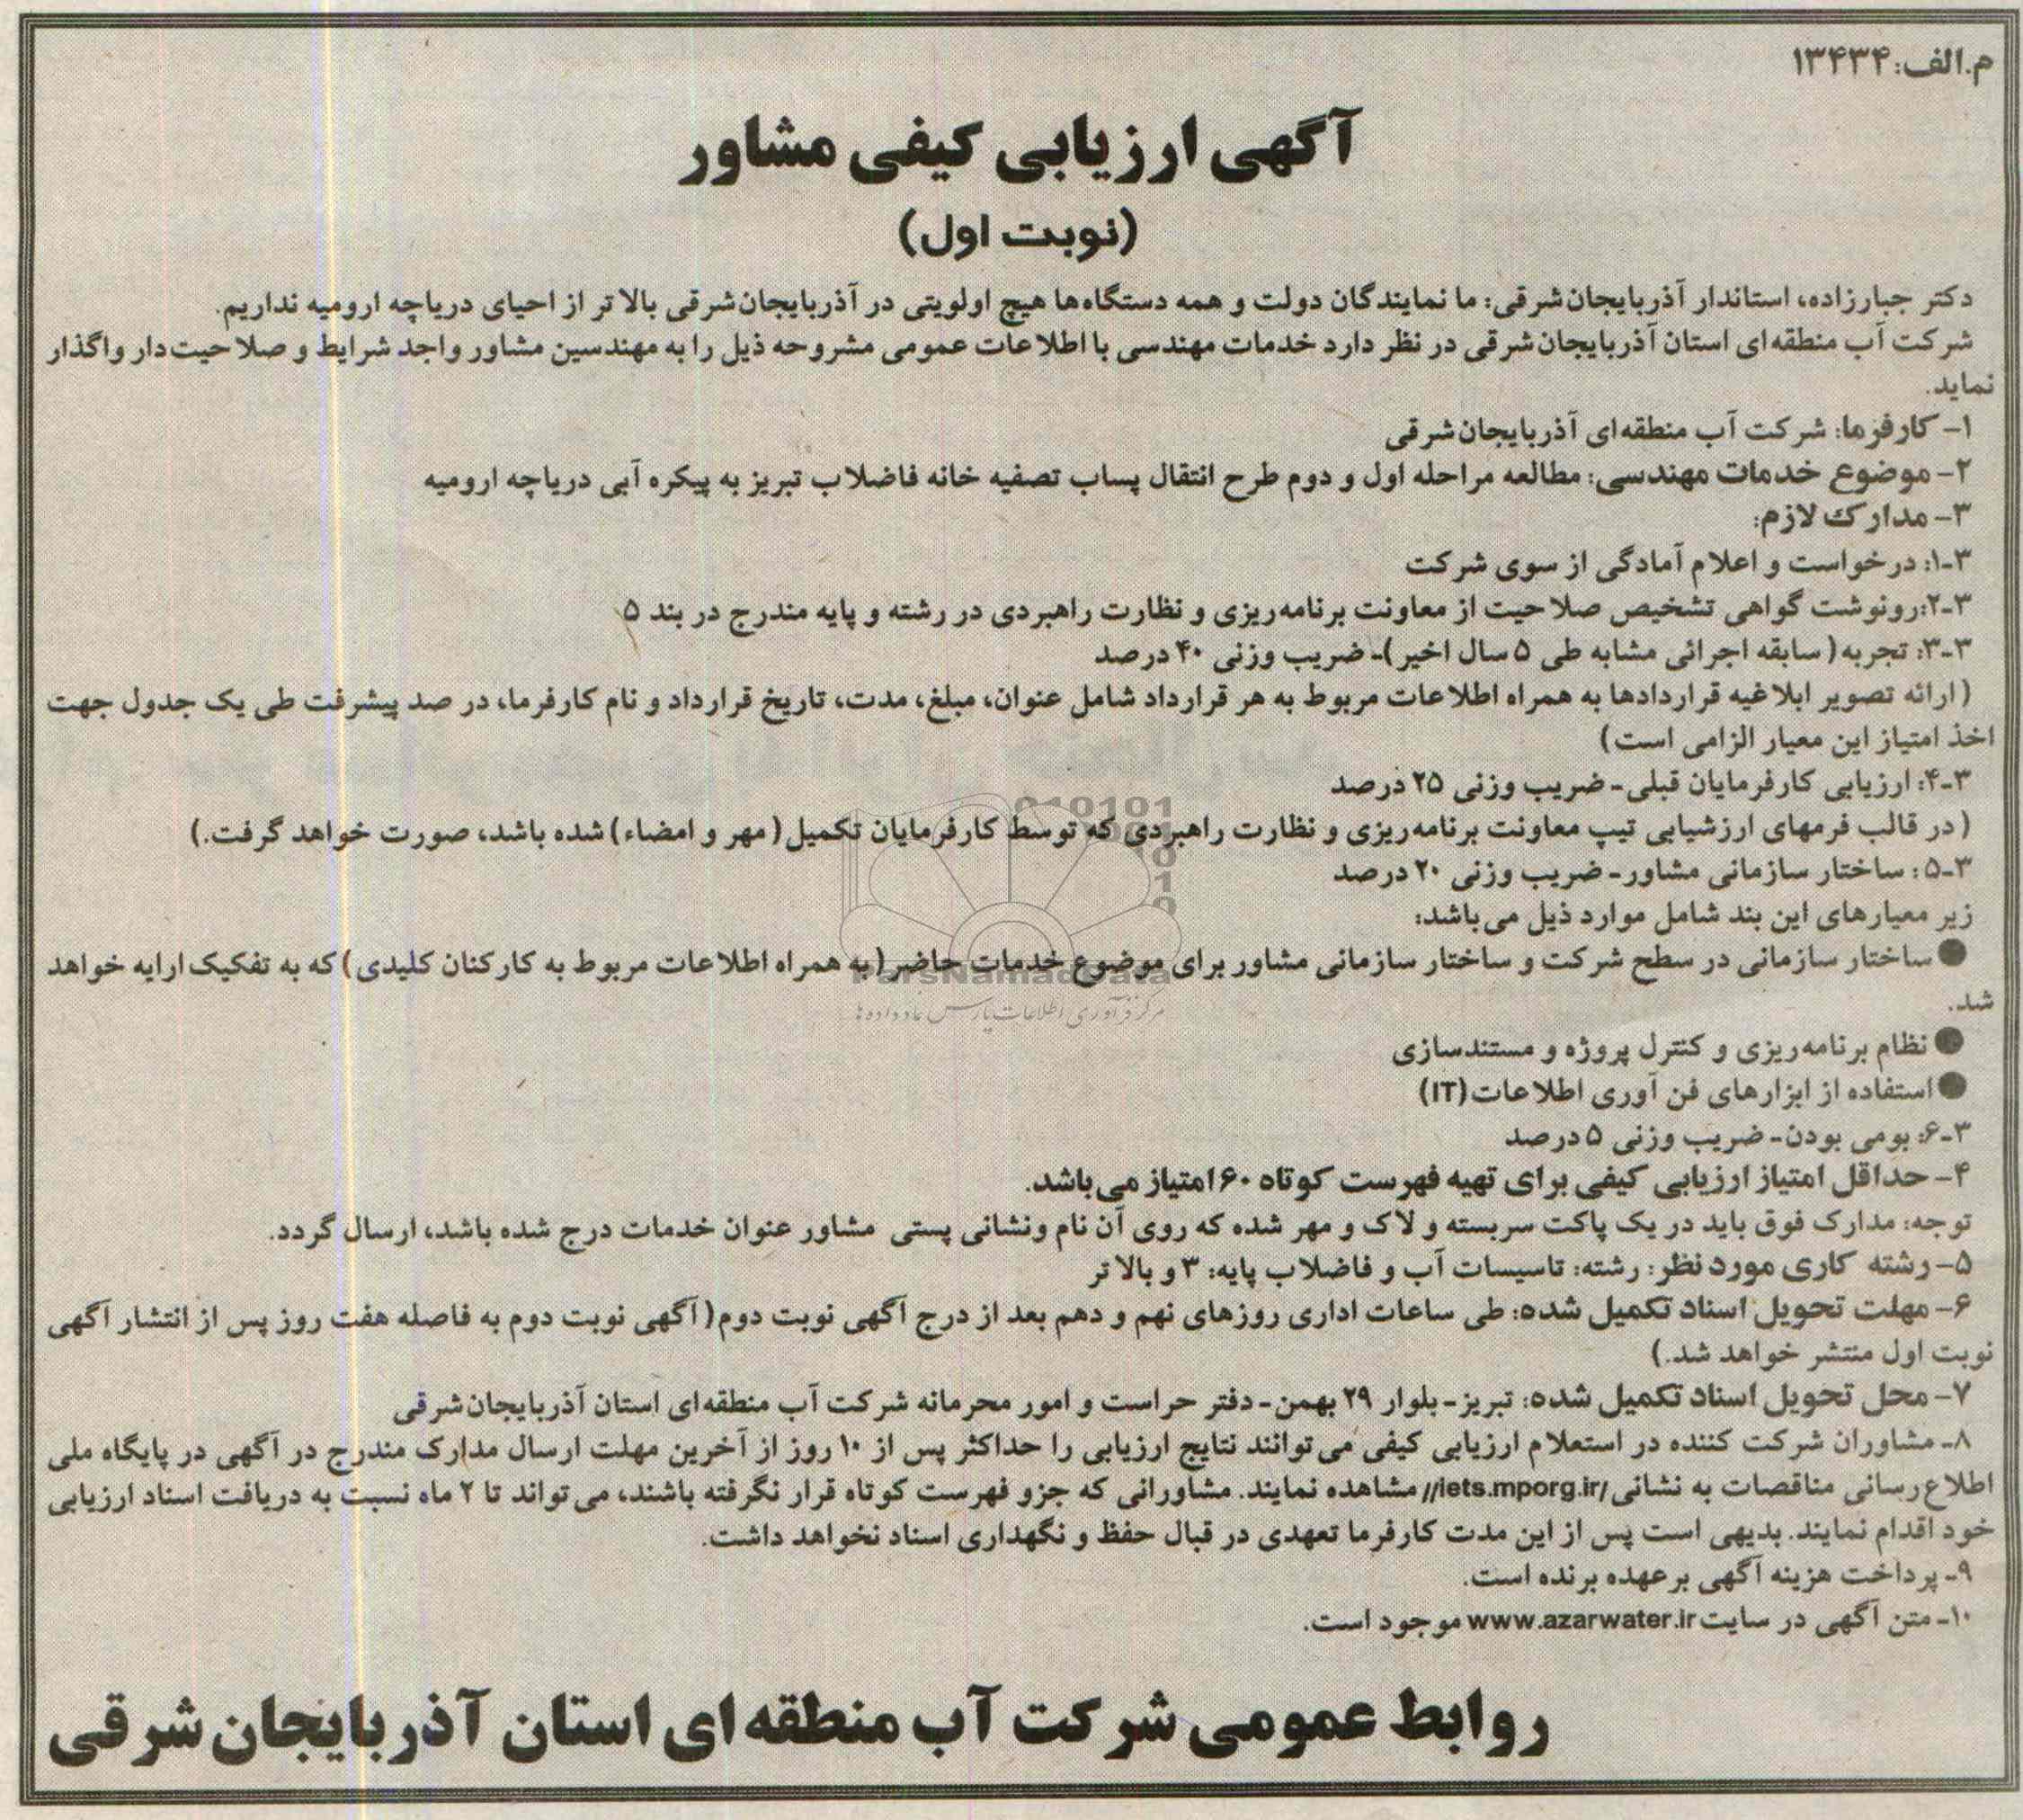 م.الف: ۱۳۴۳۴
آگهی ارزیابی کیفی مشاور
(نوبت اول)
دکتر جبارزاده، استاندار آذربایجان‌شرقی: ما نمایندگان دولت و همه دستگاه‌ها هیچ اولویتی در آذربایجان‌شرقی بالا تر از احیای دریاچه ارومیه نداریم.
شرکت آب منطقه‌ای استان آذربایجان‌شرقی در نظر دارد خدمات مهندسی با اطلاعات عمومی مشروحه ذیل را به مهندسین مشاور واجد شرایط و صلاحیت‌دار واگذار
نماید.
۱- کارفرما: شرکت آب منطقه‌ای آذربایجان‌شرقی
۲- موضوع خدمات مهندسی: مطالعه مراحله اول و دوم طرح انتقال پساب تصفیه خانه فاضلاب تبریز به پیکره آبی دریاچه ارومیه
۳- مدارک لازم:
۳-۱: درخواست و اعلام آمادگی از سوی شرکت
۳-۲:رونوشت گواهی تشخیص صلاحیت از معاونت برنامه‌ریزی و نظارت راهبردی در رشته و پایه مندرج در بند ۵
۳-۳: تجربه( سابقه اجرائی مشابه طی ۵ سال اخیر)- ضریب وزنی ۴۰ درصد
(ارائه تصویر ابلاغیه قراردادها به همراه اطلاعات مربوط به هر قرارداد شامل عنوان، مبلغ، مدت، تاریخ قرارداد و نام کارفرما، در صد پیشرفت طی یک جدول جهت
اخذ امتیاز این معیار الزامی است)
۳-۴: ارزیابی کارفرمایان قبلی- ضریب وزنی ۲۵ درصد
( در قالب فرمهای ارزشیابی تیپ معاونت برنامه‌ریزی و نظارت راهبردی که توسط کارفرمایان تکمیل( مهر و امضاء) شده باشد، صورت خواهد گرفت.)
۳-۵: ساختار سازمانی مشاور- ضریب وزنی ۲۰ درصد
زیر معیارهای این بند شامل موارد ذیل می‌باشد:
● ساختار سازمانی در سطح شرکت و ساختار سازمانی مشاور برای موضوع خدمات حاضر(به همراه اطلاعات مربوط به کارکنان کلیدی) که به تفکیک ارایه خواهد
شد.
ParsNamadData
مرکز فرآوری اطلاعات پارس نماد داده‌ها
● نظام برنامه‌ریزی و کنترل پروژه و مستندسازی
● استفاده از ابزارهای فن آوری اطلاعات(IT)
۳-۶: بومی بودن- ضریب وزنی ۵ درصد
۴- حداقل امتیاز ارزیابی کیفی برای تهیه فهرست کوتاه ۶۰ امتیاز می‌باشد.
توجه: مدارک فوق باید در یک پاکت سربسته و لاک و مهر شده که روی آن نام ونشانی پستی مشاور عنوان خدمات درج شده باشد، ارسال گردد.
۵- رشته کاری مورد نظر: رشته: تاسیسات آب و فاضلاب پایه: ۳ و بالا تر
۶- مهلت تحویل اسناد تکمیل شده: طی ساعات اداری روزهای نهم و دهم بعد از درج آگهی نوبت دوم( آگهی نوبت دوم به فاصله هفت روز پس از انتشار آگهی
نوبت اول منتشر خواهد شد.)
۷- محل تحویل اسناد تکمیل شده: تبریز- بلوار ۲۹ بهمن- دفتر حراست و امور محرمانه شرکت آب منطقه‌ای استان آذربایجان‌شرقی
۸- مشاوران شرکت کننده در استعلام ارزیابی کیفی می‌توانند نتایج ارزیابی را حداکثر پس از ۱۰ روز از آخرین مهلت ارسال مدارک مندرج در آگهی در پایگاه ملی
اطلاع‌رسانی مناقصات به نشانی //iets.mporg.ir/ مشاهده نمایند. مشاورانی که جزو فهرست کوتاه قرار نگرفته باشند، می‌تواند تا ۲ ماه نسبت به دریافت اسناد ارزیابی
خود اقدام نمایند. بدیهی است پس از این مدت کارفرما تعهدی در قبال حفظ و نگهداری اسناد نخواهد داشت.
۹- پرداخت هزینه آگهی برعهده برنده است.
۱۰- متن آگهی در سایت www.azarwater.ir موجود است.
روابط عمومی شرکت آب منطقه‌ای استان آذربایجان‌شرقی